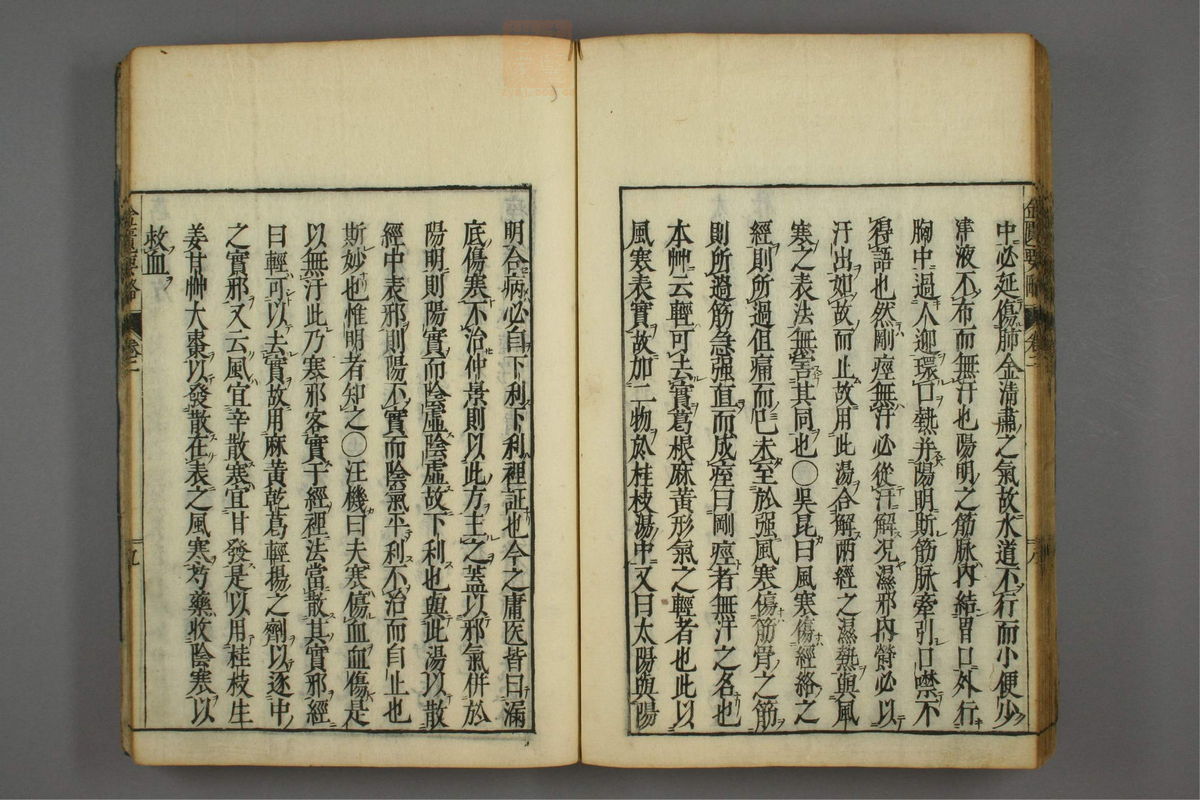 中必延傷肺金清肅之氣故水道不行而小便少
津液不布而無汗也陽明之筋脉內結胃口外行
胸中過人迎環口熱并陽明斯筋脉牽引口噤不
得語也然剛痙無汗必從汗解况濕邪內欝必以
汗出如故而止故用此湯合解兩經之濕熱與風
寒之表法無害其同也〇吳昆曰風寒傷經絡之
經則所過但痛而已未至於强風寒傷筋骨之筋
則所過筋急强直而成痙曰剛痙者無汗之名也
本艸云輕可去實葛根麻黃形氣之輕者也此以
風寒表實故加二物於桂枝湯中又曰太陽與陽
明合病必自下利下利裡証也今之庸医皆曰漏
底傷寒不治仲景則以此方主之蓋以邪氣併於
陽明則陽實而陰虛陰虛故下利也與此湯以散
經中表邪則陽不實而陰氣平利不治而自止也
斯妙也惟明者知之〇汪機曰夫寒傷血血傷是
以無汗此乃寒邪客實于經裡法當散其實邪經
曰輕可以去實故用麻黃乾葛輕揚之劑以逐中
之實邪又云風宜辛散寒宜甘發是以用桂枝生
姜甘艸大棗以發散在表之風寒芍藥收陰寒以
救血
金匱要略 卷二 九